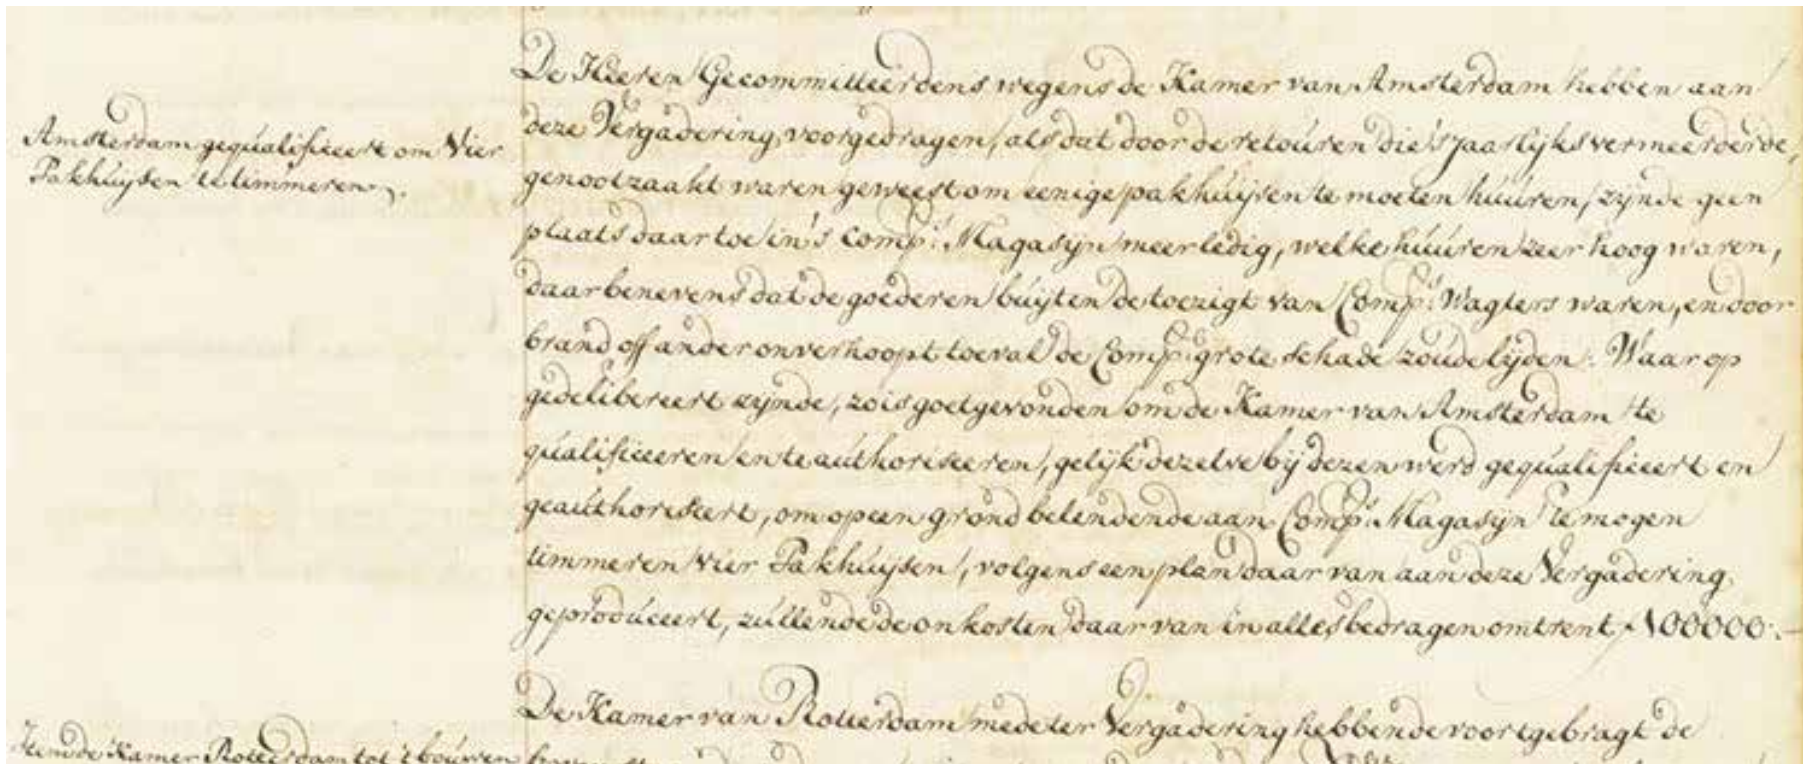 De Heeren Gecommitteerdens wegens de Kamer van Amsterdam hebben aan
Amsterdam gequalificeert om Vier
Pakhuijsen te timmeren.
deze Vergadering voorgedragen, als dat door de retouren die 's jaarlijks vermeerderde,
genootzaakt waren geweest om eenige pakhuijsen te moeten huuren, zijnde geen
plaats daar toe in 's Comp:s Magasijn meer ledig, welke huuren zeer hoog waren,
daar benevens dat de goederen buijten de toezigt van Comp:s Wagters waren, en door
brand off ander onverhoopt toeval de Comp: grote schade zoude lijden. Waar op
gedelibereert zijnde, zo is goetgevonden om de Kamer van Amsterdam te
qualificeeren en te authoriseeren, gelijk dezelve bij dezen werd gequalificeert en
geauthoriseert, om op een grond belendende aan Comp:s Magasijn te mogen
timmeren vier Pakhuijsen, volgens een plan daar van aan deze Vergadering
geproduceert, zullende de onkosten daar van in alles bedragen omtrent ƒ100000.–
De Kamer van Rotterdam mede ter Vergadering hebbende voortgebragt de
Item de Kamer Rotterdam tot 't bouwen